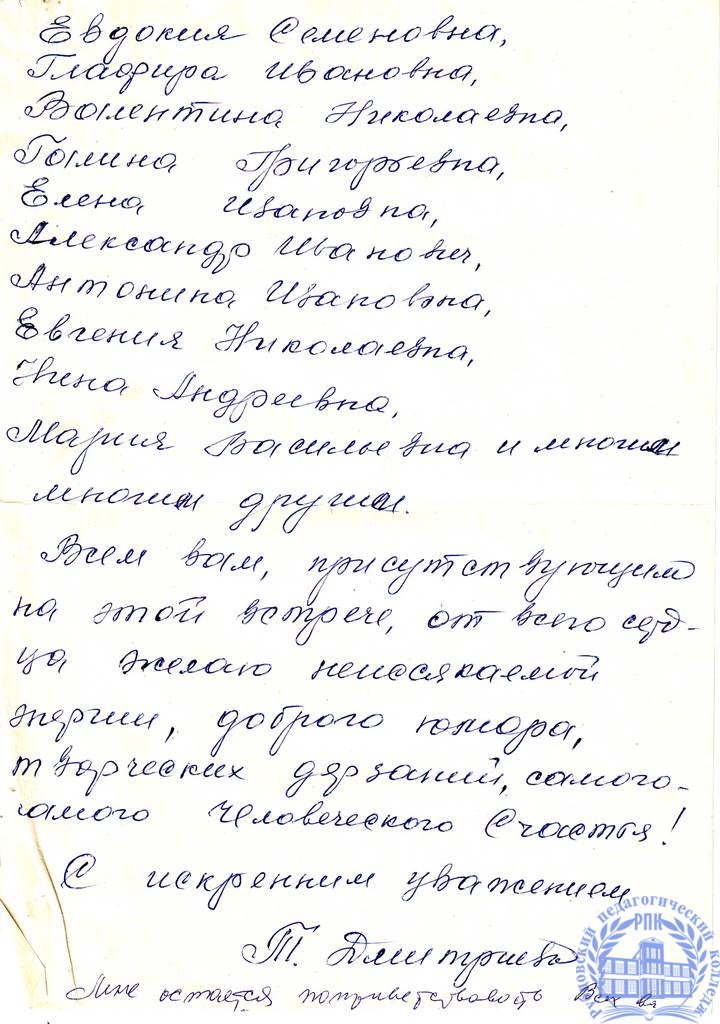 Евдокия Семеновна,
Глафира Ивановна,
Валентина Николаевна,
Галина Григорьевна,
Елена Ивановна,
Александр Иванович,
Антонина Ивановна,
Евгения Николаевна,
Нина Андреевна,
Мария Васильевна и многим
многим другим.
Всем вам, присутствующим
на этой встрече, от всего серд-
ца желаю неиссякаемой
энергии, доброго юмора,
творческих дерзаний, самого-
самого человеческого Счастья!
С искренним уважением
Т. Дмитриева
Мне остается поприветствовать Всех
Руновский педагогический колледж
РПК